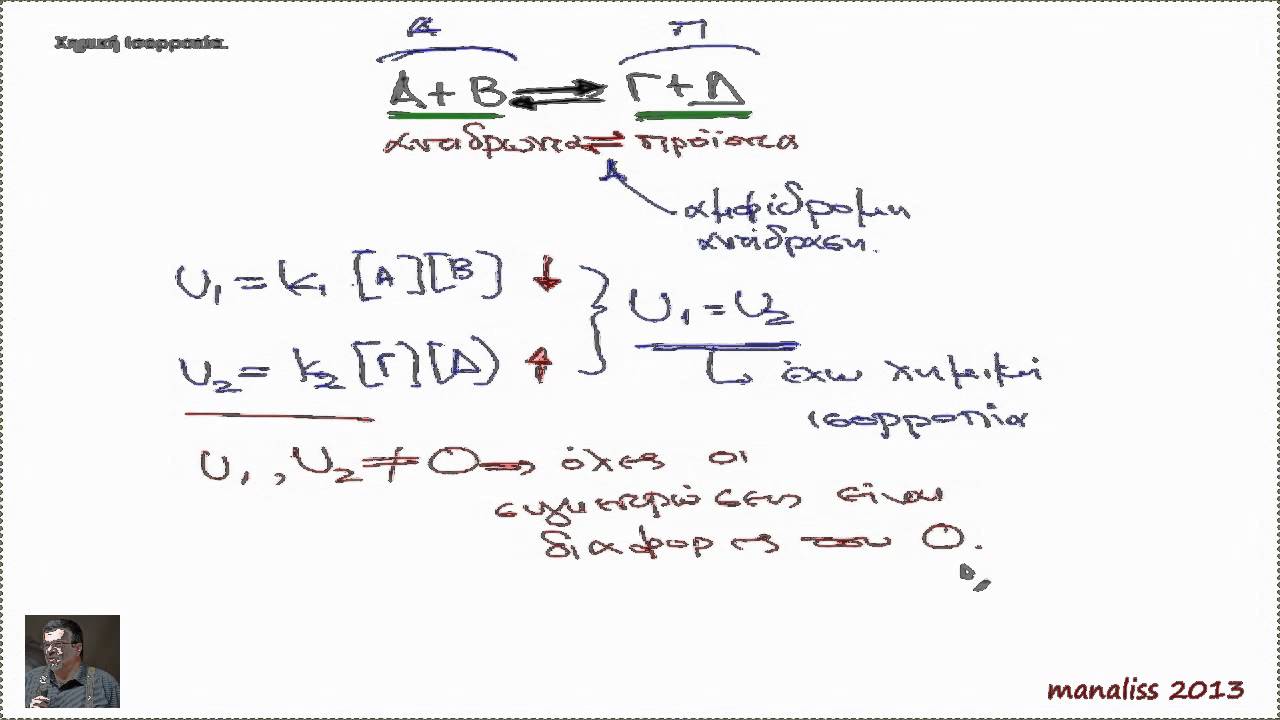 Χημική ισορροπία.
Α Π
Α + Β ⇌ Γ + Δ
αντιδρώντα ⇌ προϊόντα
αμφίδρομη
αντίδραση.
υ₁ = k₁ [Α][Β] ↓
υ₁ = υ₂
υ₂ = k₂ [Γ][Δ] ↑
έχω χημική
ισορροπία
υ₁, υ₂ ≠ 0 → όλες οι
συγκεντρώσεις είναι
διάφορες του 0.
manaliss 2013